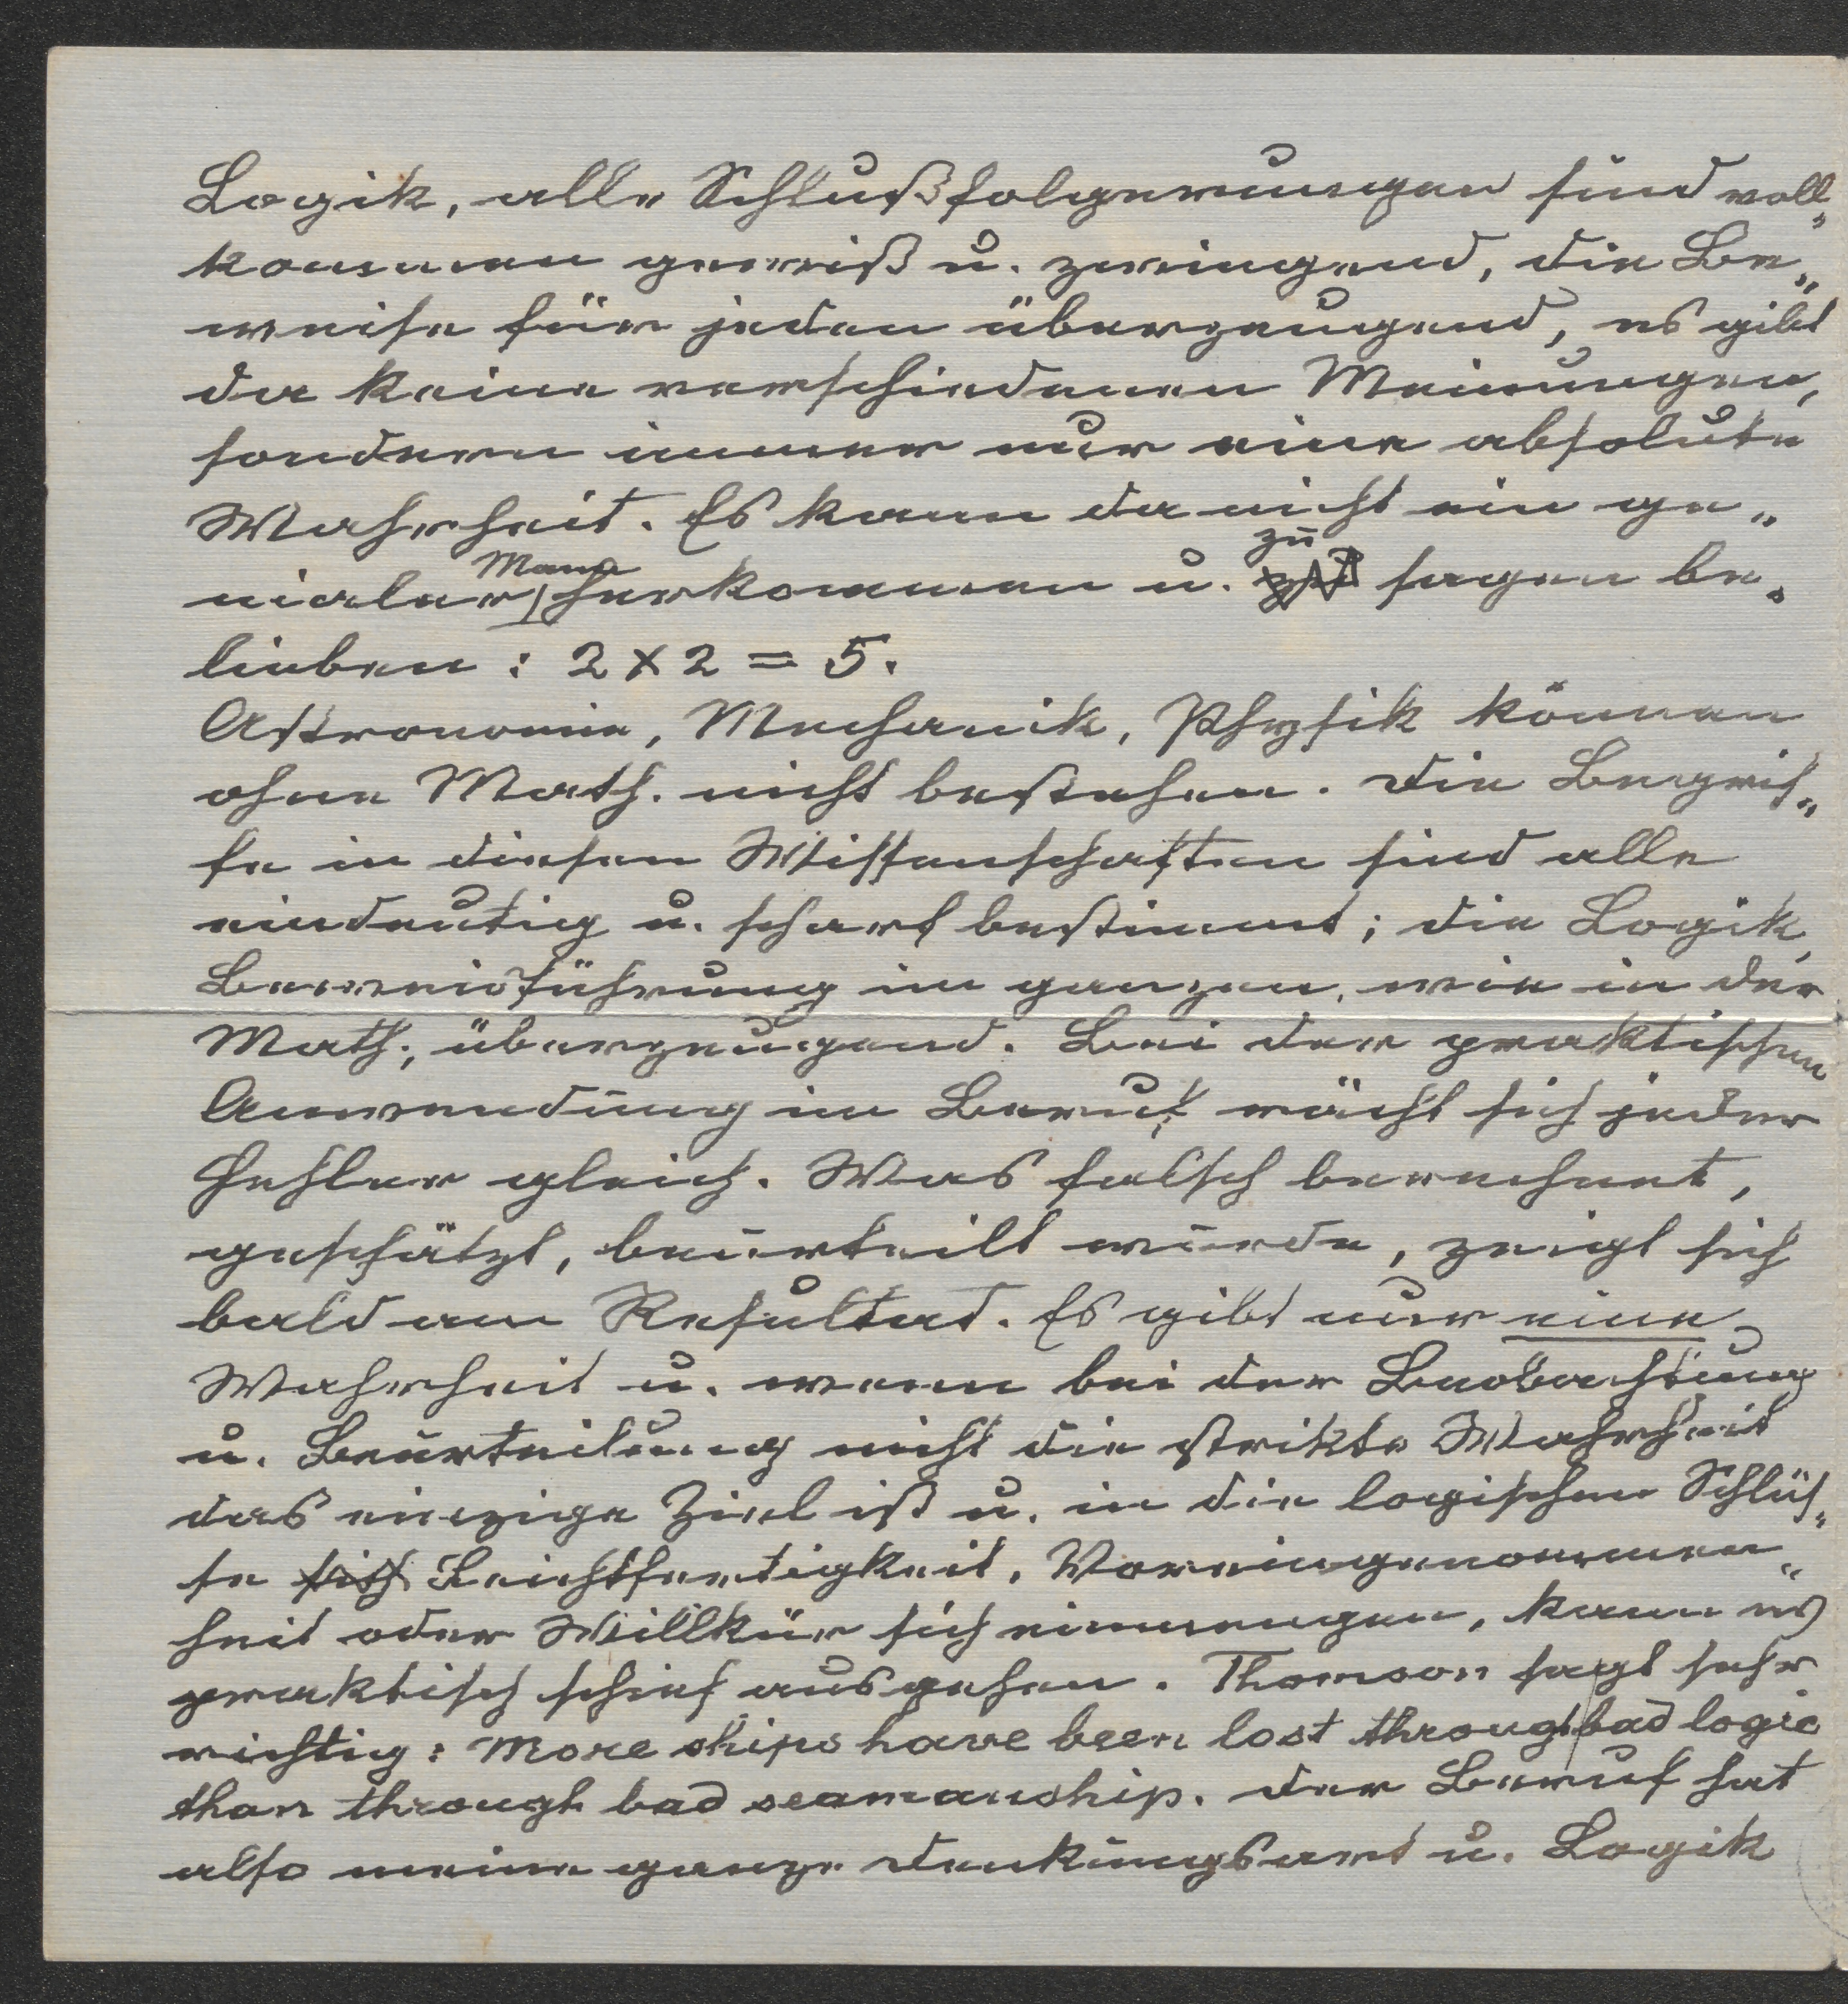 Logik, alle Schlußfolgerungen sind voll-
kommen gewiß u. zwingend, die Be-
weise für jeden überzeugend, es gibt
da keine verschiedenen Meinungen,
sondern immer nur eine absolute
Wahrheit. Es kann da nicht ein ge-
nialer Mann herkommen u. zu sagen be-
lieben: 2 x 2 = 5.
Astronomie, Mechanik, Physik können
ohne Math. nicht bestehen. Die Begrif-
fe in diesen Wissenschaften sind alle
eindeutig u. scharf bestimmt; die Logik,
Beweisführung im ganzen, wie in der
Math., überzeugend. Bei der praktischen
Anwendung im Beruf rächt sich jeder
Fehler gleich. Was falsch berechnet,
geschätzt, beurteilt wurde, zeigt sich
bald am Resultat. Es gibt nur eine
Wahrheit u. wenn bei der Beobachtung
u. Beurteilung nicht die strikte Wahrheit
das einzige Ziel ist u. in die logischen Schlüs-
se sich Leichtfertigkeit, Voreingenommen-
heit oder Willkür sich einmengen, kann es
praktisch schief ausgehen. Thomson sagt sehr
richtig: More ships have been lost through bad logic
than through bad seamanship. Der Beruf hat
also meine ganze Denkungsart u. Logik